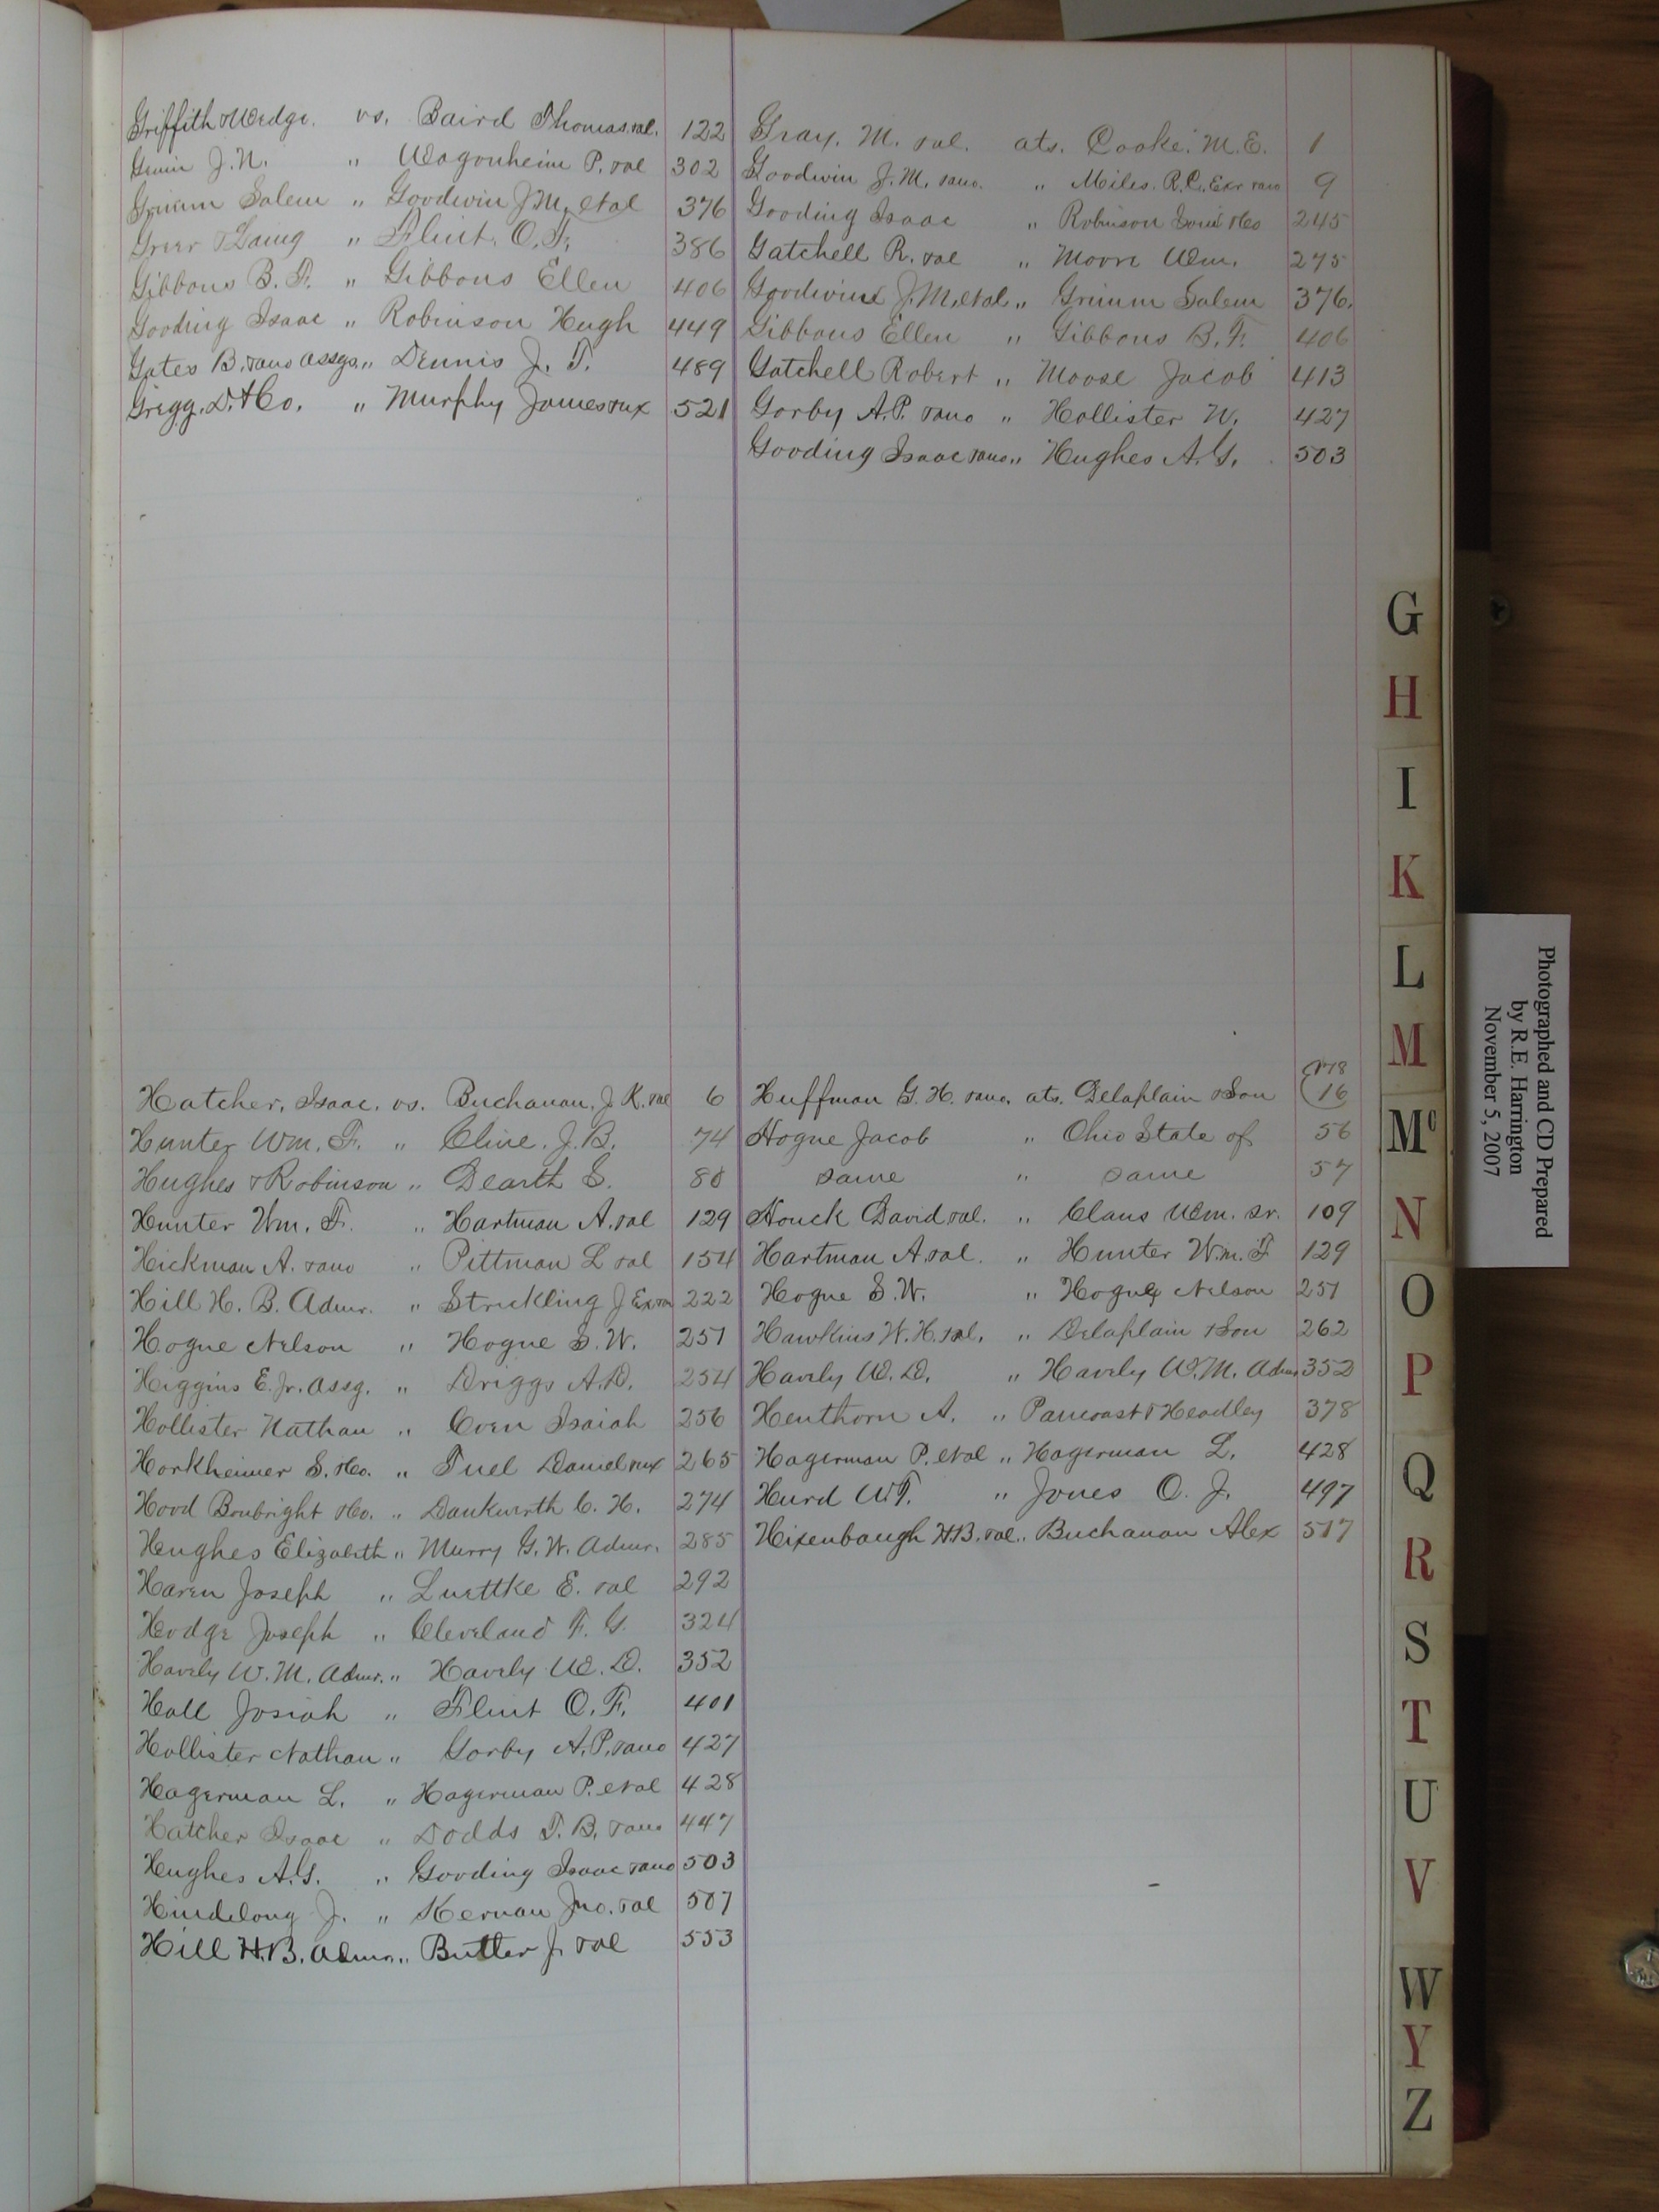 Griffith & Wedge. vs. Baird Thomas & al. 122
J. N. " Wagonheim P. & al 302
Grimm Salem " Goodwin J M, et al 376
Greer & Laing " Flint, O. F. 386
Gibbons B. F. " Gibbons Ellen 406
Gooding Isaac " Robinson Hugh 449
Gates B. & ano Assgs. " Dennis J. T. 489
Gregg. D. & Co. " Murphy James & ux 521
Gray. M. & al. ats. Cooke. M. E. 1
Goodwin J. M. & ano. " Miles. R. C. Exr & ano 9
Gooding Isaac " Robinson & Co 245
Gatchell R. & al " Moore Wm. 275
Goodwin J. M. et al " Grimm Salem 376.
Gibbons Ellen " Gibbons B. F. 406
Gatchell Robert " Moose Jacob 413
Gorby A. P. & ano " Hollister N. 427
Gooding Isaac & ano " Hughes A. G. 503
Hatcher, Isaac. vs. Buchanan, J. K. & al 6
Hunter Wm. F. " Cline. J. B. 74
Hughes & Robinson " Dearth S. 80
Hunter Wm. F. " Hartman A. & al 129
Hickman A. & ano " Pittman L & al 154
Hill H. B. Admr. " Strickling J Ex & ano 222
Hogue Nelson " Hogue S. W. 251
Higgins E. Jr. Assg. " Driggs A. D. 254
Hollister Nathan " Coen Isaiah 256
Horkheimer S. & Co. " Tuel Daniel & ux 265
Hood Bonbright & Co. " Dankwerth C. H. 274
Hughes Elizabeth " Murry G. W. Admr. 285
Haren Joseph " Luettke E. & al 292
Hodge Joseph " Cleveland F. G. 324
Havely W. M. Admr. " Havely W. D. 352
Hall Josiah " Flint O. F. 401
Hollister Nathan " Gorby A. P. & ano 427
Hagerman L. " Hagerman P. et al 428
Hatcher Isaac " Dodds T. B. & ano 447
Hughes A. G. " Gooding Isaac & ano 503
Hindelong J. " Kernan Jno. & al 507
Hill H. B. Admr. " Butler J. & al 553
178
Huffman G. H. & ano. ats. Delaplain & Son 16
Hogue Jacob " Ohio State of 56
same " same 57
Houck David & al. " Claus Wm. Sr. 109
Hartman A. & al. " Hunter Wm. F 129
Hogue S. W. " Hogue Nelson 251
Hawkins W. H. & al. " Delaplain & Son 262
Havely W. D. " Havely W. M. Admr 352
Henthorn A. " Pancoast & Headley 378
Hagerman P. et al " Hagerman L. 428
Hurd W. F. " Jones O. J. 497
Hixenbaugh H. B. & al. " Buchanan Alex 517
G
H
I
K
L
M
Mc
N
O
P
Q
R
S
T
U
V
W
Y
Z
Photographed and CD Prepared
by R.E. Harrington
November 5, 2007